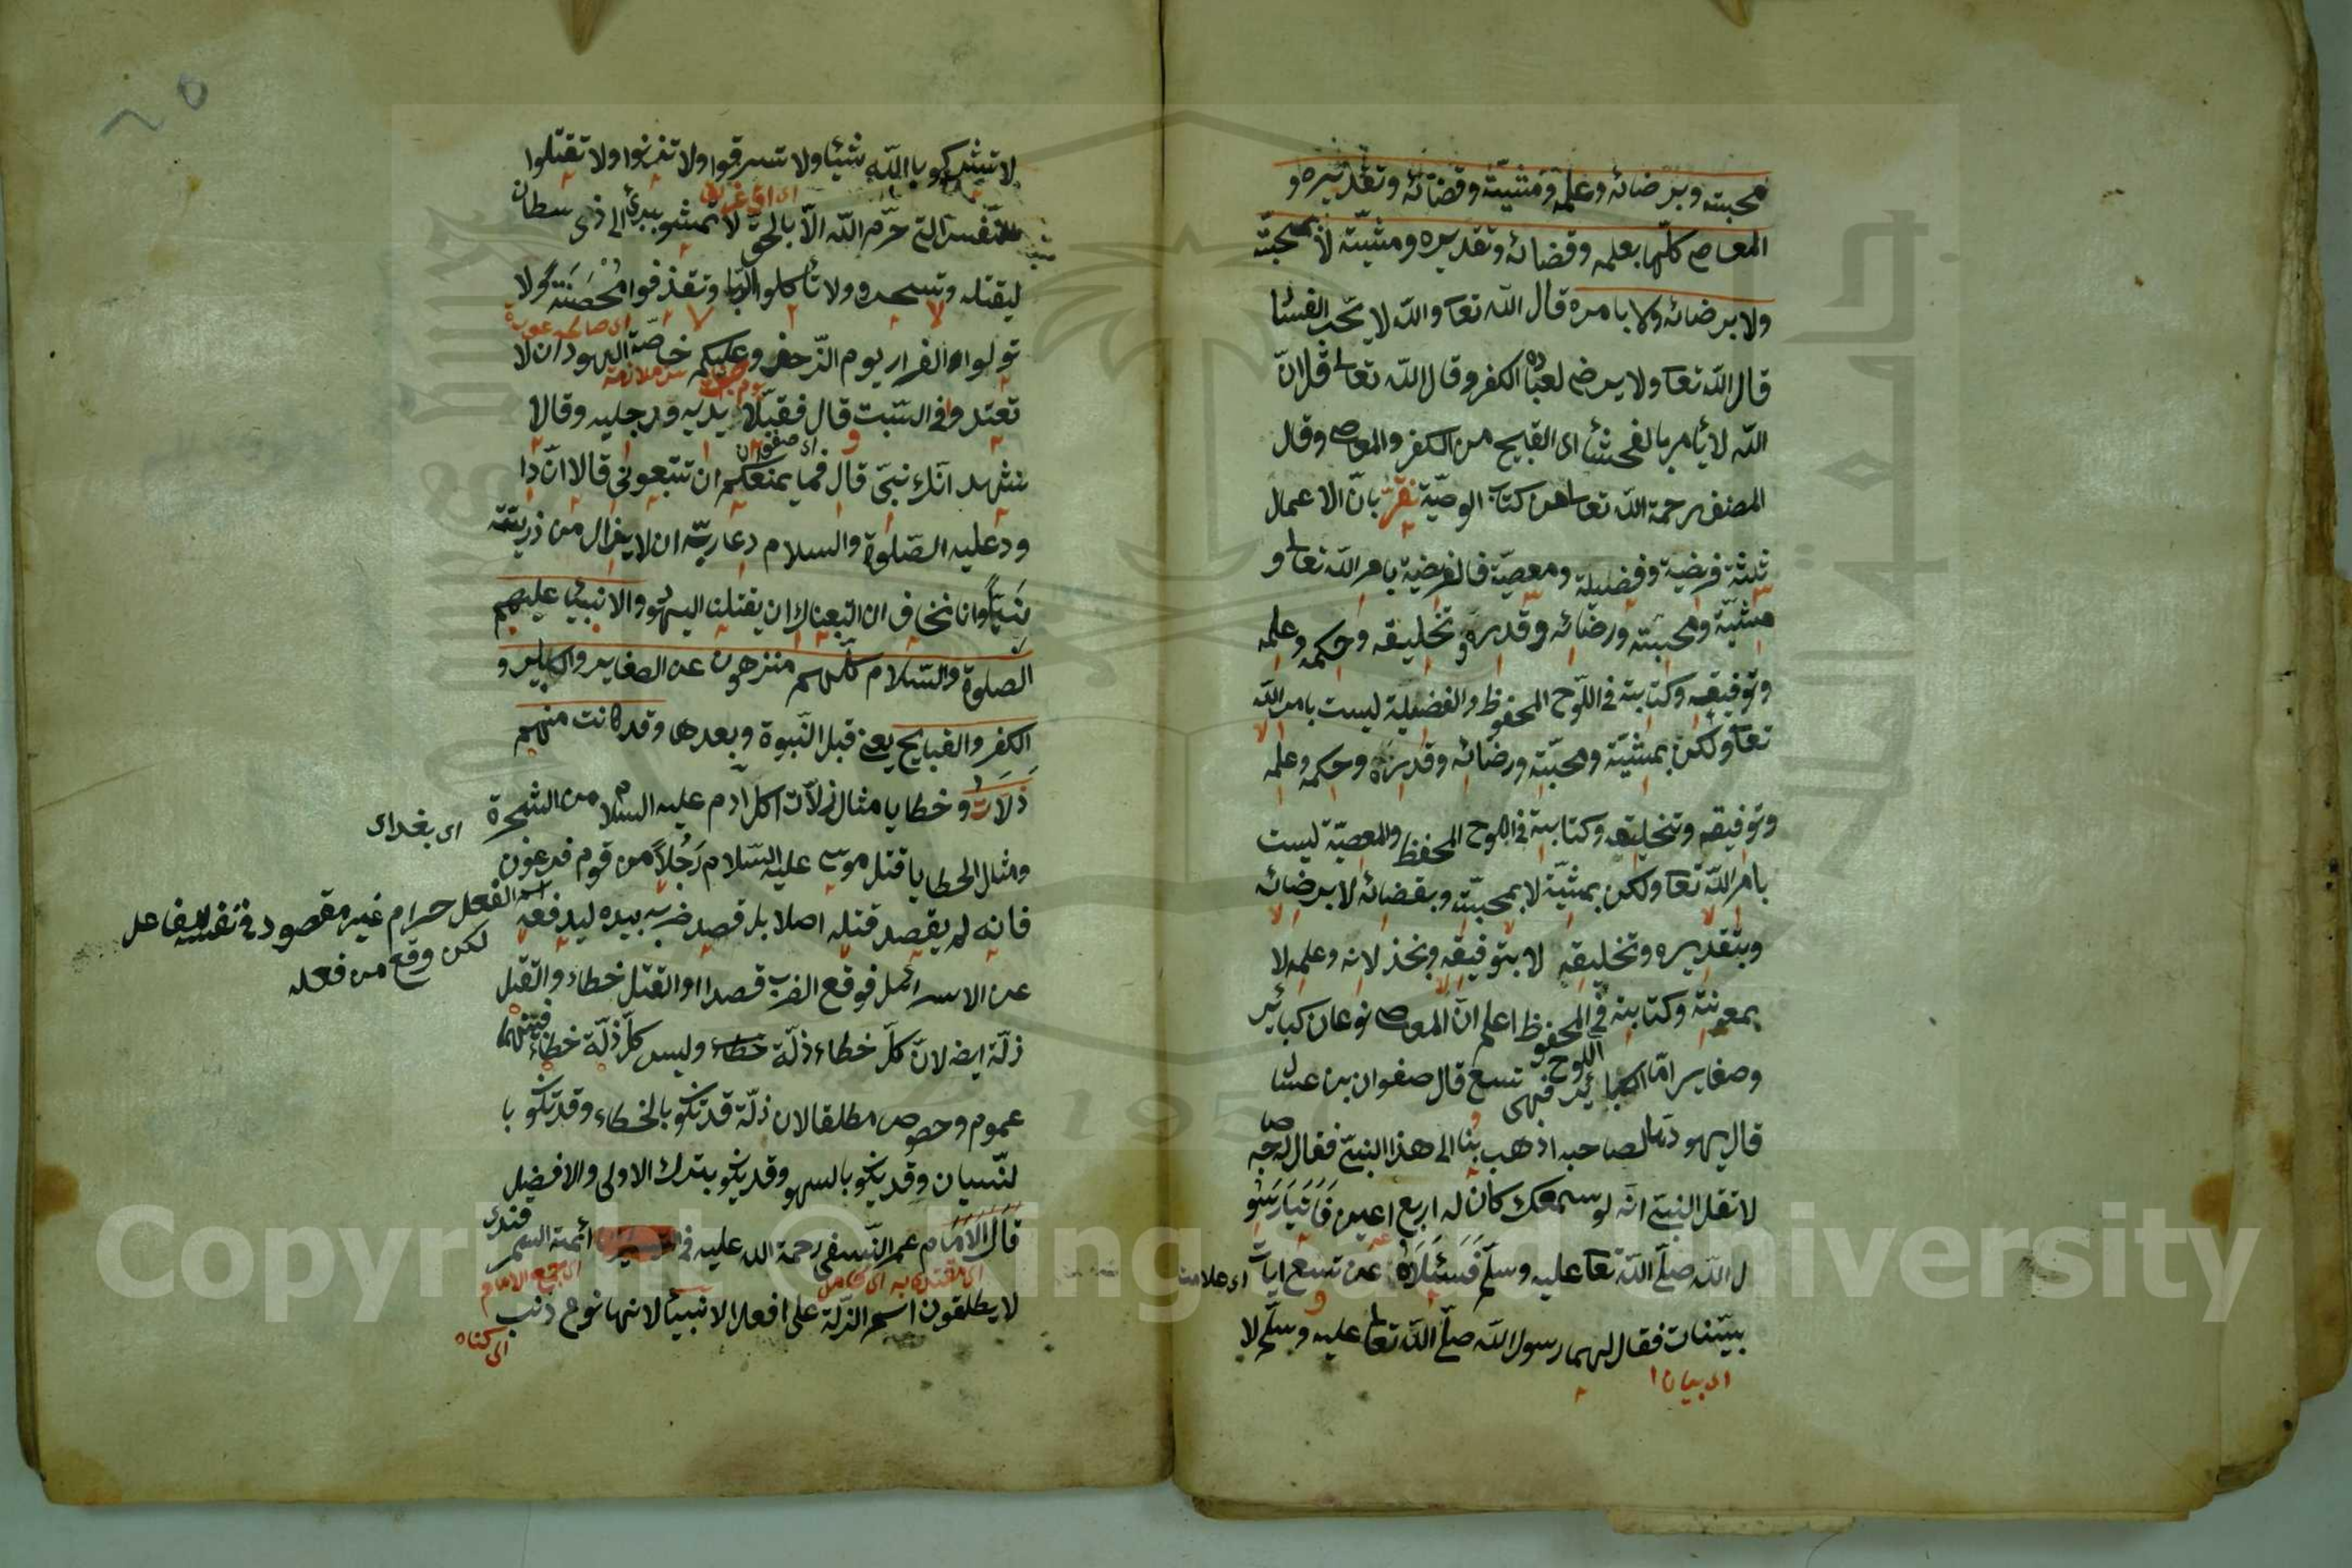 محبته وبرضائه وعلمه ومشيته وقضائه وتقديره و
المعاصى كلّها بعلمه وقضائه وتقديره ومشيّته لا بمحبّته
ولا برضائه ولا بامره قال الله تعا والله لا يحّب الفسا
قال الله تعا ولا يرضى لعباده الكفر وقال الله تعالى قل انّ
الله لا يأمر بالفحشا اى القبيح من الكفر والمعاصى وقال
المصنف رحمة الله تعالى من كتاب الوصيّة نقرّ بانّ الاعمال
ثلثة فريضة وفضيلة ومعصيّة فالفريضة بامر الله تعالى و
مشيّة ومحبّته ورضائه وقدره وتخليقه وحكمه وعلمه
وتوفيقه وكتابته فى اللّوح المحفوظ والفضيلة ليست بامر الله
تعا ولكن بمشيّة ومحبّته ورضائه وقدره وحكمه وعلمه
وتوفيقه وتخليقه وكتابته فى اللوح المحفظ والمعصيّة ليست
بامر الله تعا ولكن بمشيّة لا بمحبّته وبقضائه لا برضائه
وبتقديره وتخليقه لا بتوفيقه وبخذلانه وعلمه لا
بمعونته وكتابته فى المحفوظ اعلم انّ المعاصى نوعان كبائر
اللوح
وصغاير امّا الكبائر فهى تسع قال صفوان بن عسال
قال يهوديا لصاحبه اذهب بنا الى هذا النبىّ فقال له صاحبه
لا تقل النبىّ انّه لو سمعك كان له اربع اعين فَاَتَيَا رَسُو
ل الله صلّى الله تعا عليه وسلّم فَسَئَلَاهُ عن تسع ايات
بيّنات فقال لهما رسول الله صلّى الله تعالى عليه وسلّم لا
اى بيان
لا تشركو بالله شيئا ولا تسرقوا ولا تزنوا ولا تقتلوا
النّفس التى حرّم الله الّا بالحق لا تمشو ببرئ الى ذى سطان
ليقتله وتسحرو ولا تأكلوا الرّبا وتقذفوا مُحْصَنَةً ولا
تولوا الفرار يوم الزّحف وعليكم خاصّة اليهود ان لا
تعتدوا فى السّبت قال فقبّلا يديه ورجليه وقالا
اى صفوان
نشهد انّك نبىّ قال فما يمنعكم ان تتبعونى قالا انّ دا
ود عليه الصّلوة والسلام دعا ربّه ان لا يزال من ذريته
نبيّا وان نخاف ان اتبعناك ان يقتلنا اليهود والانبياء عليهم
الصلوة والسّلام كلّهم منزهون عن الصغاير والكباير و
الكفر والقبايح يعنى قبل النّبوة وبعدها وقد كانت منهم
زلّات وخطايا مثال زلّات اكل ادم عليه السلام من الشجرة
ومثال الخطايا قتل موسى عليه السّلام رَجُلاً من قوم فرعون
فانه لم يقصد قتله اصلا بل قصد ضربه بيده ليدفعه
عن الاسرائل فوقع الضرب قصدا والقتل خطاء والقتل
زلّة ايضه لانّ كلّ خطاء زلّة خطاء وليس كلّ زلّة خطاء فبينهما
عموم وخصوص مطلقا لان زلّة قد تكو بالخطاء وقد تكو با
لنّسيان وقد يكو بالسهو وقد يكو بترك الاولى والافضل
قال الامام عمر النّسفى رحمة الله عليه فى التيسير ائمة السمرقندى
لا يطلقون اسم الزلّة على افعال الانبيا لانها نوع ذنب
اى كناه
اى بغداى
اسم الفعل حرام غير مقصود فى نفسه لفاعل
لكن وقع من فعله
Copyright © King Saud University